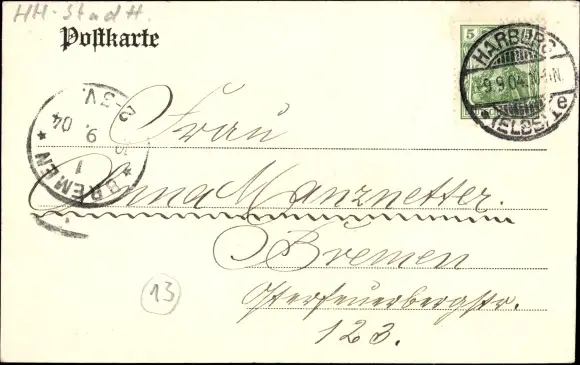 HH-Stadt.
Postkarte
5
HARBURG
9.9.04. 
(ELBE) 1e
BREMEN
9. 04
2-3V.
1
Frau
Anna Manznetter.
Bremen
Osterfeuerbergstr.
123.
13